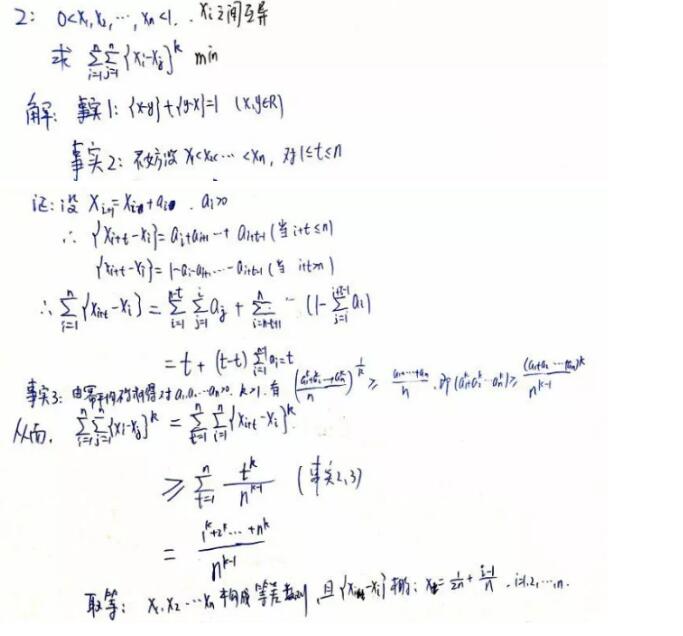 2: 0<x₁,x₂,…,xₙ<1. xᵢ之间互异
求 ∑ᵢ₌₁ⁿ∑ⱼ₌₁ⁿ{xᵢ-xⱼ}ᵏ min
解: 事实1: {x-y}+{y-x}=1 (x,y∈R)
事实2: 不妨设 x₁<x₂<…<xₙ, 对1≤t≤n
证: 设 xᵢ₊₁=xᵢ+aᵢ. aᵢ>0
∴ {xᵢ₊ₜ-xᵢ}=aᵢ+aᵢ₊₁…+aᵢ₊ₜ₋₁ (当 i+t≤n)
{xᵢ₊ₜ-xᵢ}=1-aᵢ-aᵢ₊₁…-aᵢ₊ₜ₋₁ (当 i+t>n)
∴ ∑ᵢ₌₁ⁿ{xᵢ₊ₜ-xᵢ}=∑ᵢ₌₁ⁿ⁻ᵗ∑ⱼ₌₁ⁱaⱼ+∑ᵢ₌ₙ₋ₜ₊₁ⁿ (1-∑aᵢ)
=t+(t-t)∑aᵢ=t
事实3: 由幂平均不等式得对a₁,a₂…aₙ>0. k>1. 有 ((a₁ᵏ+a₂ᵏ…+aₙᵏ)/n)^(1/k) ≥ (a₁+…+aₙ)/n. 即 (a₁ᵏ+a₂ᵏ…aₙᵏ)≥(a₁+a₂…+aₙ)ᵏ/nᵏ⁻¹
从而, ∑ᵢ₌₁ⁿ∑ⱼ₌₁ⁿ{xᵢ-xⱼ}ᵏ=∑ₜ₌₁ⁿ∑ᵢ₌₁ⁿ{xᵢ₊ₜ-xᵢ}ᵏ
≥∑ₜ₌₁ⁿ tᵏ/nᵏ⁻¹ (事实2,3)
=(1ᵏ+2ᵏ…+nᵏ)/nᵏ⁻¹
取等: x₁,x₂…xₙ 构成等差数列, 且{xᵢ₊₁-xᵢ}相 : xᵢ=1/2n+(i-1)/n. i=1,2,…,n.